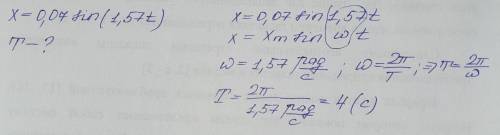 x = 0,07 sin(1,57t)
T - ?
x = 0,07 sin(1,57)t
x = xm sin ω t
ω = 1,57 рад/с ; ω = 2π/T ; ⇒ T = 2π/ω
T = 2π / 1,57 рад/с = 4 (с)